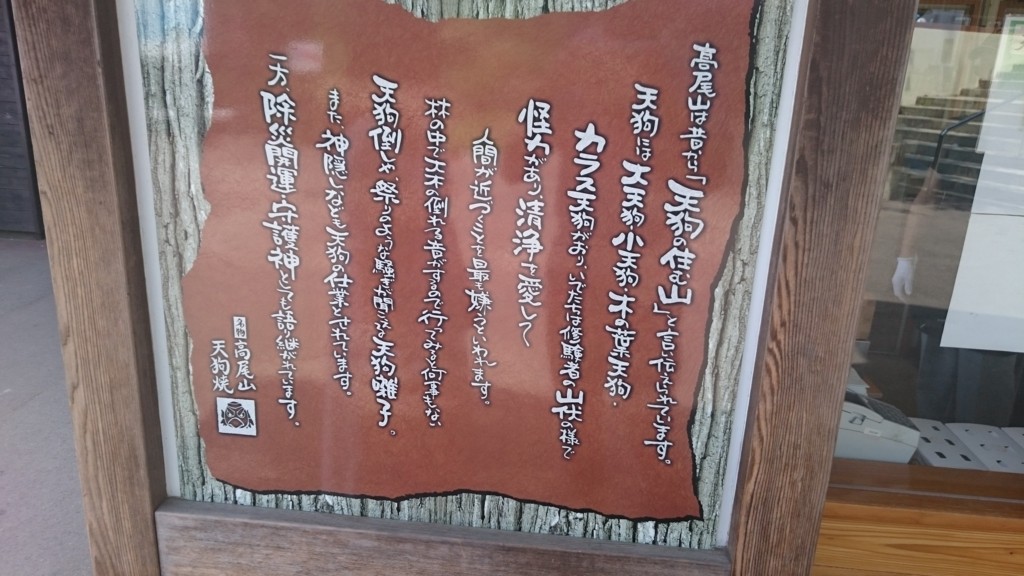 高尾山は昔から「天狗の住む山」と言い伝えられています。
天狗には大天狗小天狗木の葉天狗、
カラス天狗がおりいでたちは修験者の山伏の様で
怪力があり清浄を愛して
人間が近づくことを最も嫌うといわれます。
林の中で大木が倒れる音がするので行ってみると何事もない
天狗倒しや祭りのような騒ぎが聞こえる天狗囃子。
また、神隠しなども天狗の仕業とされています。
一方、除災開運の守護神としても語り継がれています。
名物
高尾山
天狗焼